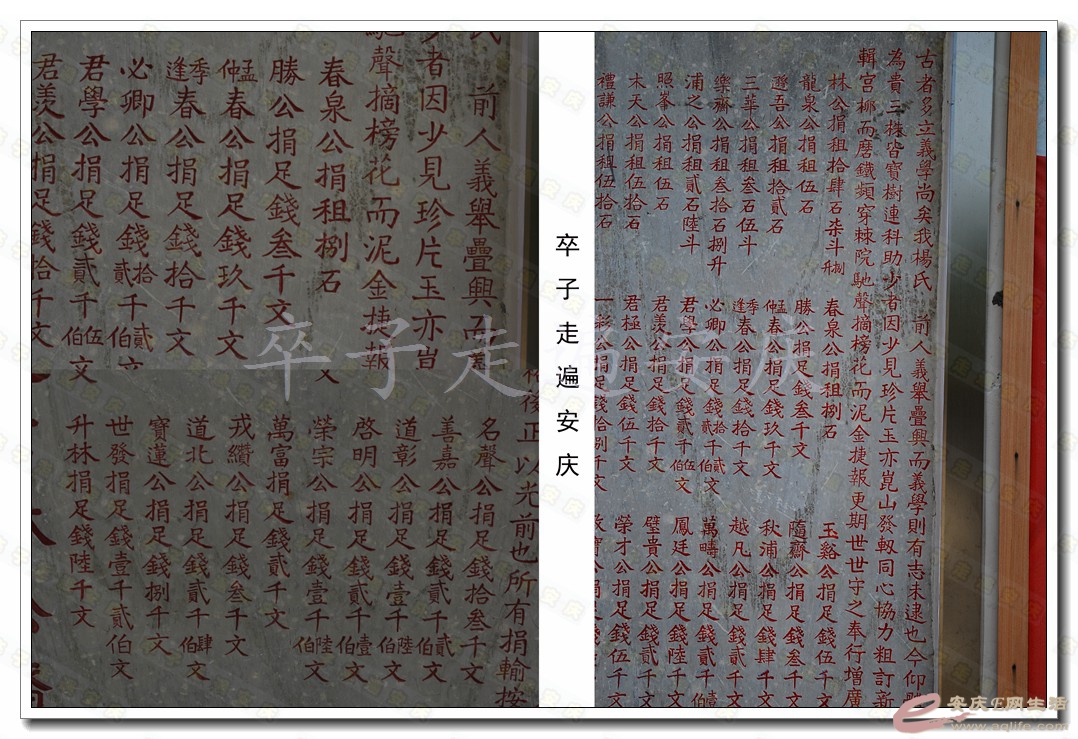 古者多立義學尚矣我楊氏 前人義舉疊興而義學則有志未逮也今仰
為貴三株皆寶樹連科助少者因少見珍片玉亦崑山發軔同心協力粗訂新
磨鐵頻穿棘院馳聲摘榜花而泥金捷報更期世世守之奉行增廣
林公捐租拾肆石柒斗捌升
龍泉公捐租伍石
遜吾公捐租拾貳石
三華公捐租叁石伍斗
樂齋公捐租叁拾石捌升
浦之公捐租貳石陸斗
照峯公捐租伍石
木天公捐租伍拾石
禮謙公捐租伍拾石
春泉公捐租捌石
勝公捐足錢叁千文
孟仲春公捐足錢玖千文
季逢春公捐足錢拾千文
必卿公捐足錢貳拾千貳伯文
君學公捐足錢貳千伍伯文
君羨公捐足錢拾千文
君極公捐足錢伍千文
公捐足錢拾捌千文
玉谿公捐足錢伍千文
隨齋公捐足錢叁千文
秋浦公捐足錢肆千文
越凡公捐足錢貳千文
萬疇公捐足錢貳千壹伯
鳳廷公捐足錢陸千文
璧貴公捐足錢貳千
榮才公捐足錢伍千文
寶公捐足錢
卒子走遍安庆
前人義舉疊興而義
者因少見珍片玉亦豈
馳聲摘榜花而泥金捷報
春泉公捐租捌石
勝公捐足錢叁千文
孟仲春公捐足錢玖千文
季逢春公捐足錢拾千文
必卿公捐足錢貳拾千貳伯文
君學公捐足錢貳千伍伯文
君羨公捐足錢拾千文
後正以光前也所有捐輸按
名聲公捐足錢拾叁千文
善嘉公捐足錢貳千貳伯文
道彰公捐足錢壹千陸伯文
啓明公捐足錢貳千壹伯文
榮宗公捐足錢壹千陸伯文
萬富捐足錢貳千文
戎纘公捐足錢叁千文
道北公捐足錢貳千肆伯文
寶蓮公捐足錢捌千文
世發捐足錢壹千貳伯文
升林捐足錢陸千文
卒子走遍安庆
安庆E网生活
www.aqlife.com